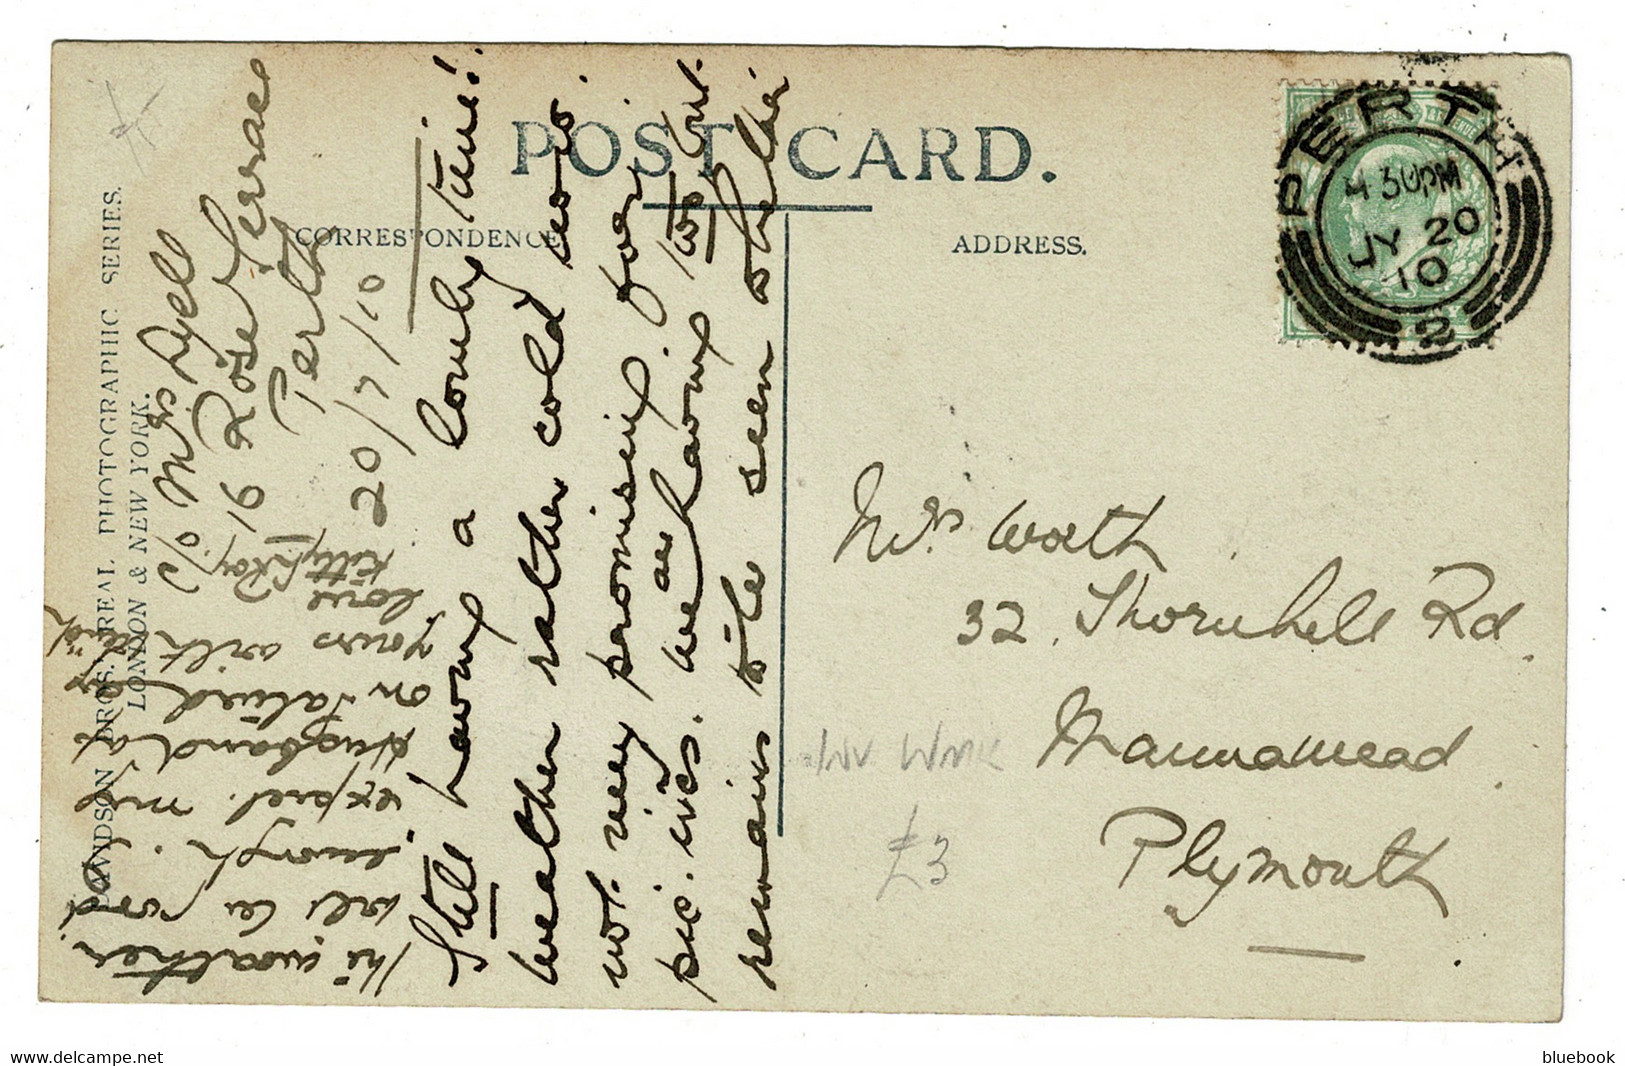 POST CARD.
CORRESPONDENCE
ADDRESS.
DAVIDSON BROS. REAL PHOTOGRAPHIC SERIES.
LONDON & NEW YORK.
PERTH
4 30PM
JY 20
10
2
c/o Mrs Lyell
16 Rose Terrace
Perth
20/7/10
Still having a lovely time!
Weather rather cold now
not very promising for
pic. nics. we are having two but
remains to be seen whether
the weather
will be good
enough. I
expect my
Husband at
on Saturday
yours with
love
Kitty
Mrs. Worth
32, Thornhill Rd.
Mannamead
Plymouth.
Inv Wmk
£3
delcampe.net
bluebook